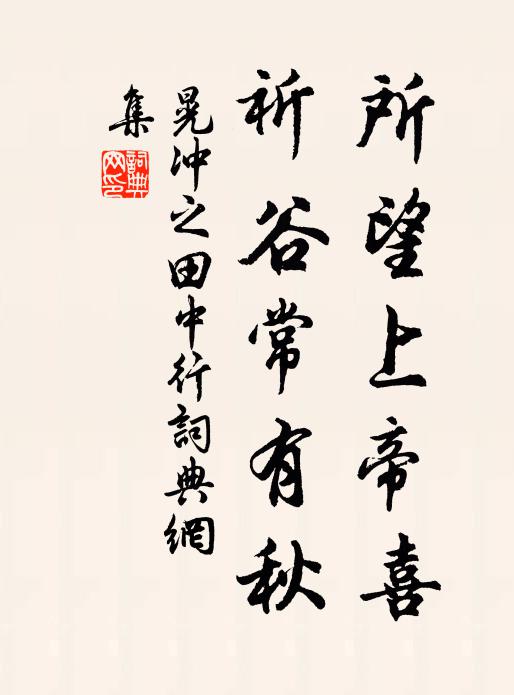 所望上帝喜
祈谷常有秋
晁冲之田中行詞典網
集
詞典
网印